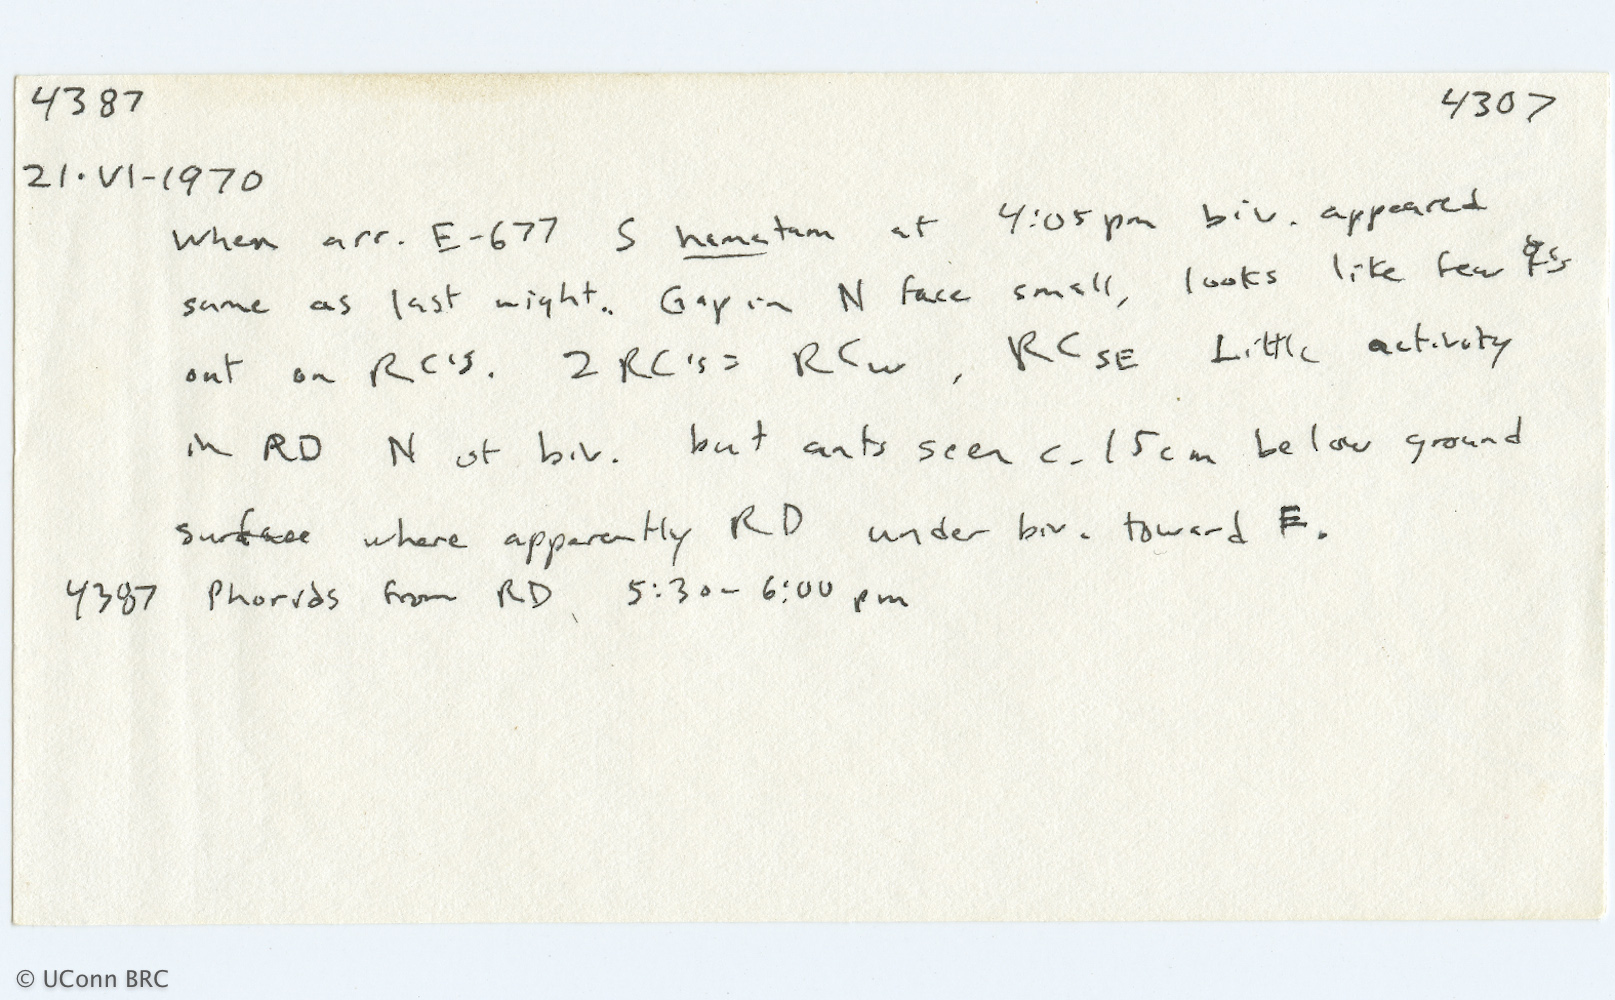 4387 4307
21·VI-1970
When arr. E-677 S hamatum at 4:05pm biv. appeared
same as last night. Gap in N face small, looks like few ☿s
out on RC's. 2 RC's = RCw, RCSE Little activity
in RD N of biv. but ants seen c. 15cm below ground
surface where apparently RD under biv. toward E.
4387 Phorids from RD 5:30-6:00 pm
© UConn BRC